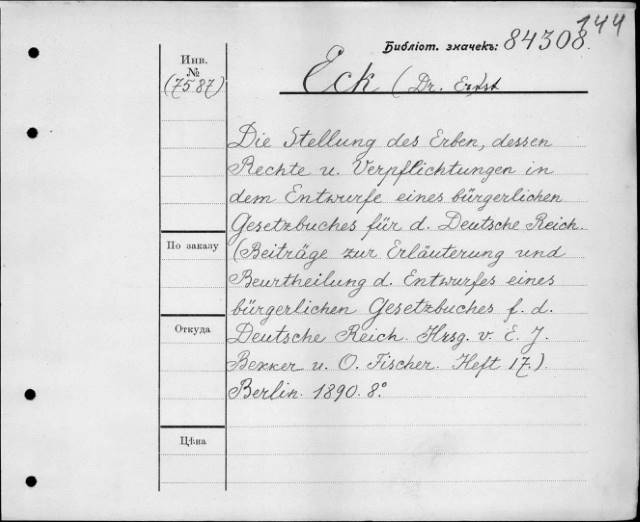 144
Библіот. значекъ: 84308.
Инв.
№
(7587)
Eck (Dr. Ernst
Die Stellung des Erben, dessen
Rechte u. Verpflichtungen in
dem Entwurfe eines bürgerlichen
Gesetzbuches für d. Deutsche Reich.
По заказу
(Beiträge zur Erläuterung und
Beurtheilung d. Entwurfes eines
bürgerlichen Gesetzbuches f. d.
Откуда
Deutsche Reich. Hrsg. v. E. J.
Bekker u. O. Fischer. Heft 17.)
Berlin. 1890. 8°
Цѣна